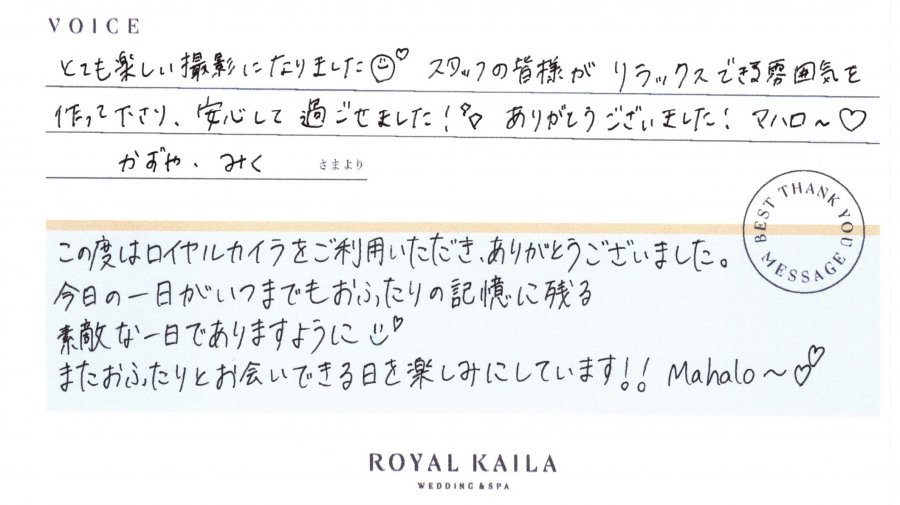 VOICE
とても楽しい撮影になりました♡ スタッフの皆様が リラックスできる雰囲気を
作って下さり、安心して過ごせました！ ありがとうございました！ マハロ〜♡
かずや、みく さまより
BEST THANK YOU MESSAGE
この度はロイヤルカイラをご利用いただき、ありがとうございました。
今日の一日がいつまでもおふたりの記憶に残る
素敵な一日でありますように♡
またおふたりとお会いできる日を楽しみにしています!! Mahalo〜♡
ROYAL KAILA
WEDDING & SPA